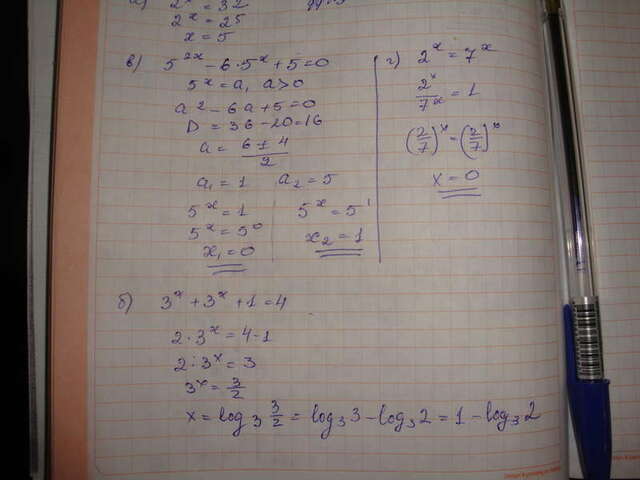 2ˣ = 32
2ˣ = 2⁵
x = 5
в) 5²ˣ - 6·5ˣ + 5 = 0
5ˣ = a, a > 0
a² - 6a + 5 = 0
D = 36 - 20 = 16
a = (6 ± 4)/2
a₁ = 1 a₂ = 5
5ˣ = 1 5ˣ = 5¹
5ˣ = 5⁰ x₂ = 1
x₁ = 0
г) 2ˣ = 7ˣ
2ˣ/7ˣ = 1
(2/7)ˣ = (2/7)⁰
x = 0
б) 3ˣ + 3ˣ + 1 = 4
2·3ˣ = 4 - 1
2·3ˣ = 3
3ˣ = 3/2
x = log₃ 3/2 = log₃3 - log₃2 = 1 - log₃2